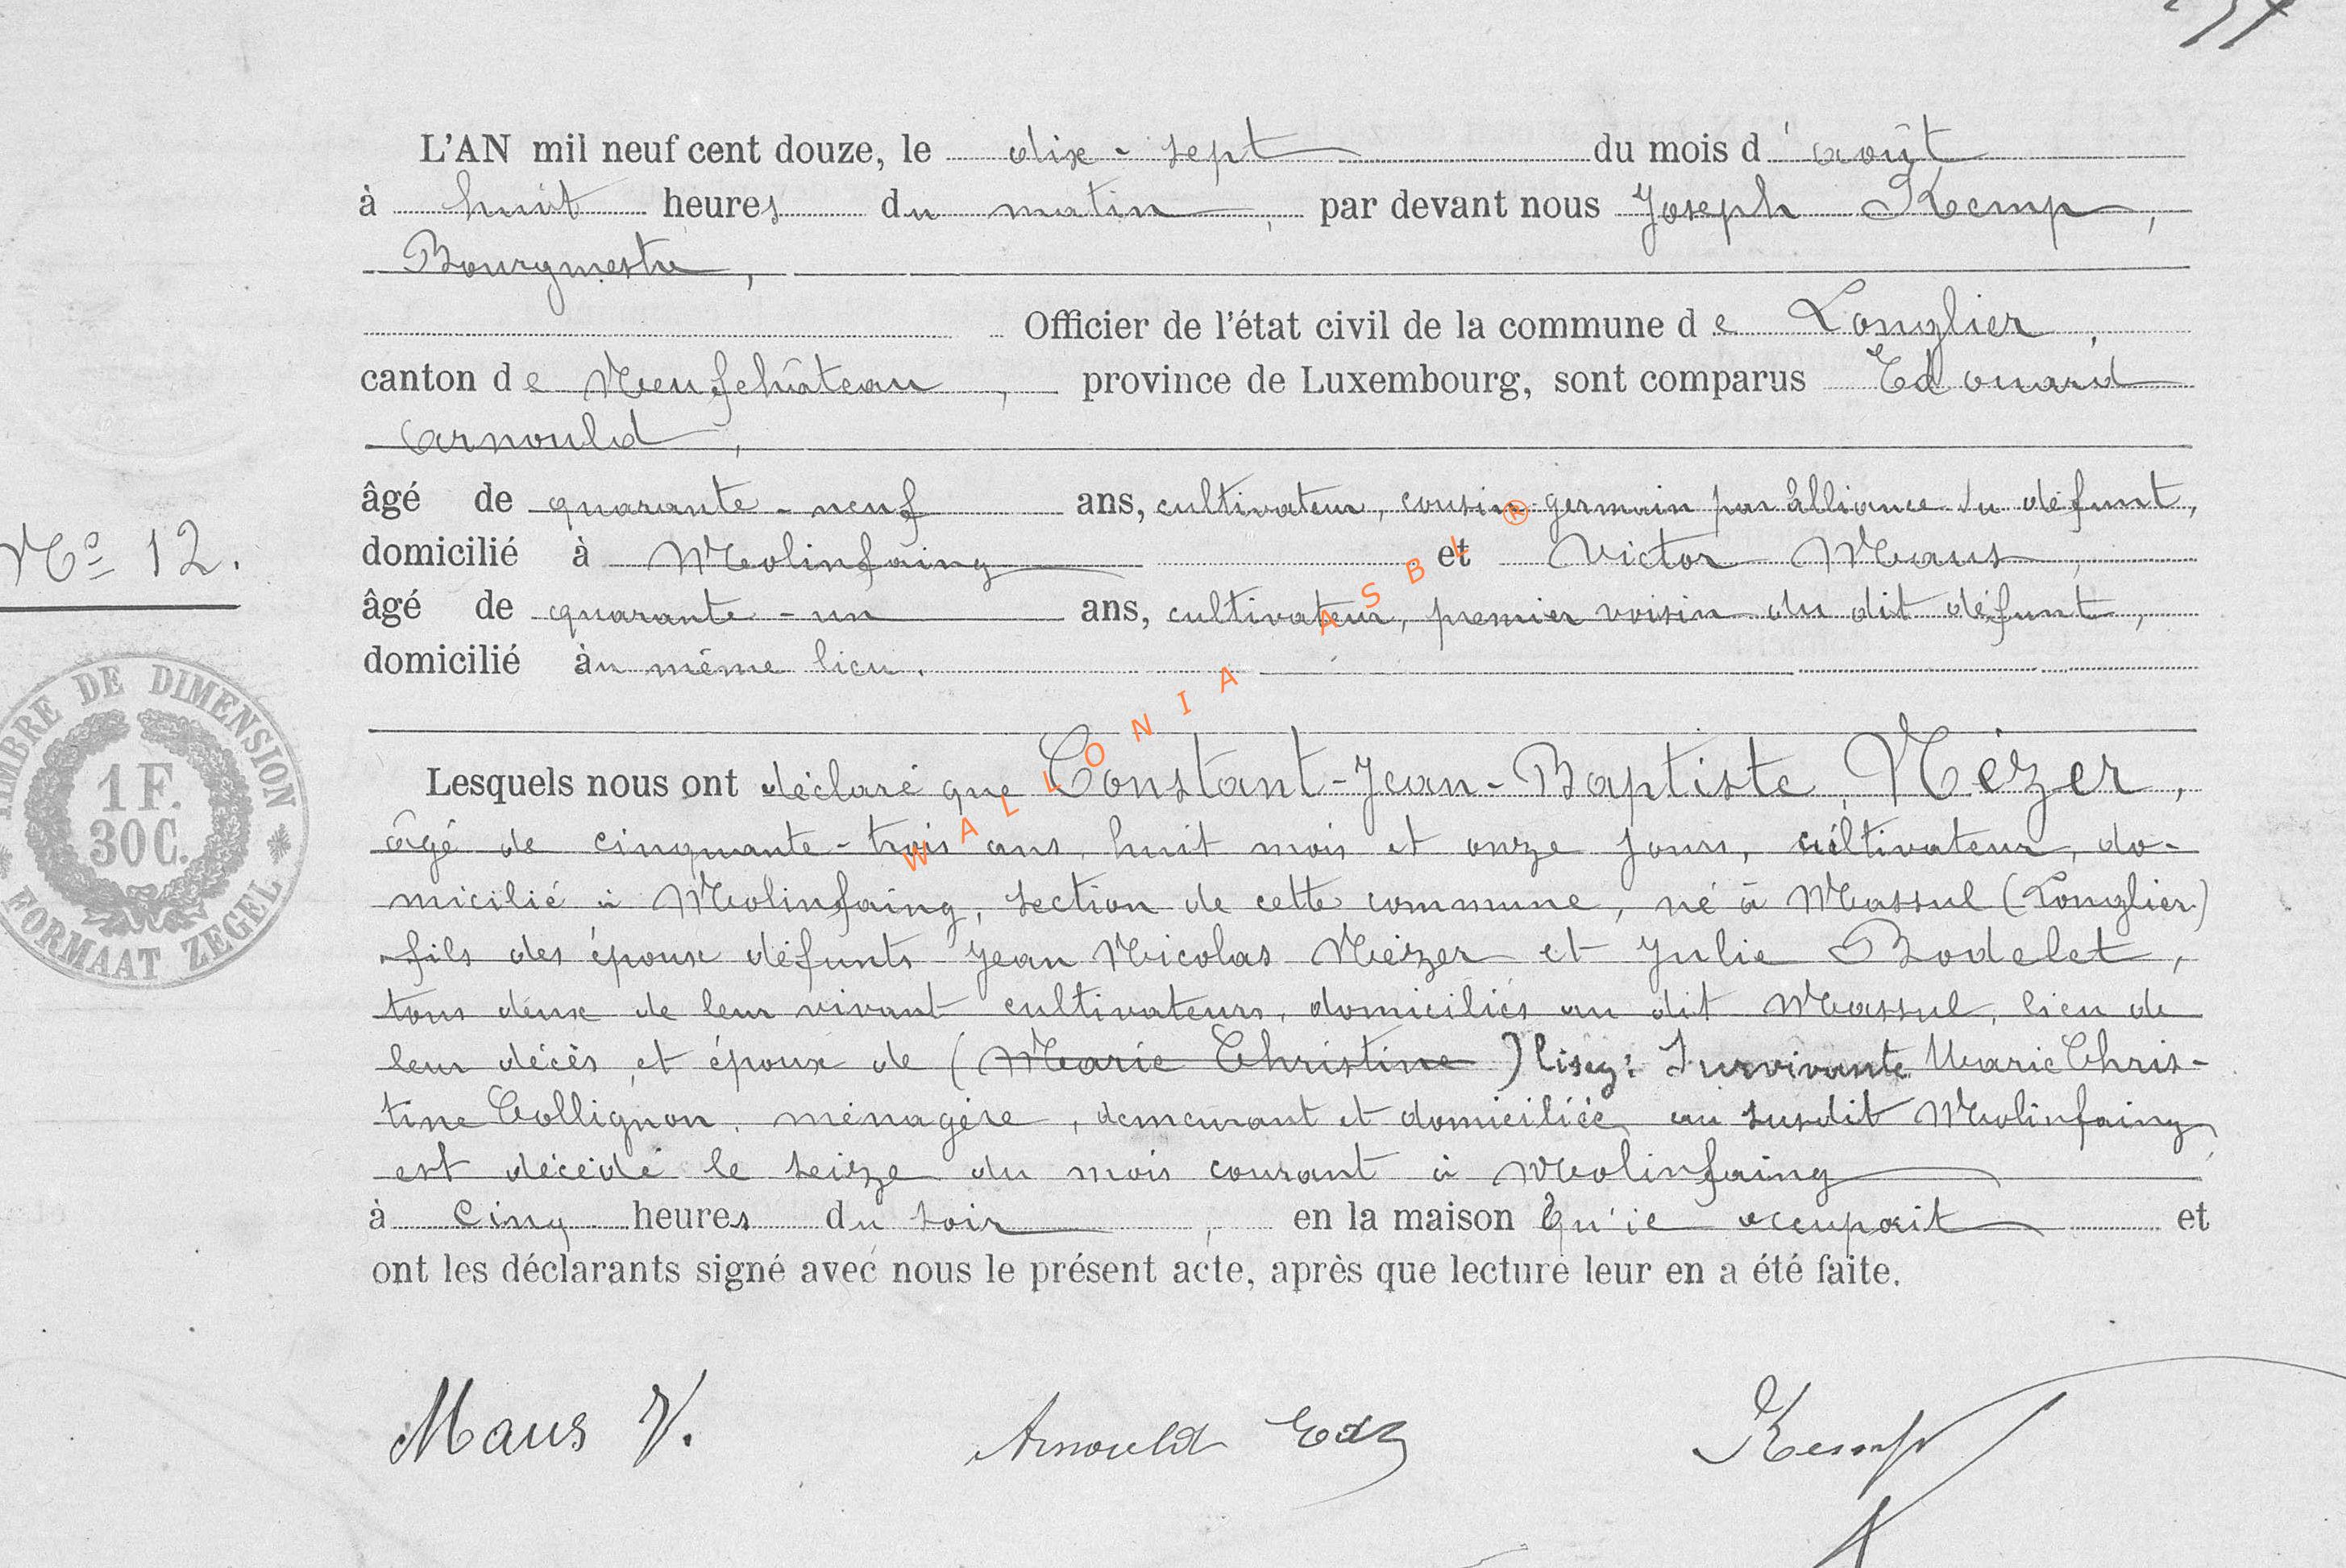 L'AN mil neuf cent douze, le dix-sept du mois d'août
à huit heures du matin, par devant nous Joseph Kemp,
Bourgmestre,
Officier de l'état civil de la commune de Longlier,
canton de Neufchâteau, province de Luxembourg, sont comparus Edouard
Arnould,
âgé de quarante-neuf ans, cultivateur, cousin germain par alliance du défunt,
N° 12.
domicilié à Molinfaing et Victor Maus,
âgé de quarante-un ans, cultivateur, premier voisin du dit défunt,
domicilié au même lieu.
TIMBRE DE DIMENSION
1 F.
30 C.
FORMAAT ZEGEL
WALLONIA ASBL ®
Lesquels nous ont déclaré que Constant-Jean-Baptiste Nézer,
âgé de cinquante-trois ans, huit mois et onze jours, cultivateur, do-
micilié à Molinfaing, section de cette commune, né à Massul (Longlier)
fils des époux défunts Jean Nicolas Nézer et Julie Bodelet,
tous deux de leur vivant cultivateurs, domiciliés au dit Massul, lieu de
leur décès, et époux de (Marie Christine) lisez: Survivante Marie Chris-
tine Collignon, ménagère, demeurant et domiciliée au susdit Molinfaing,
est décédé le seize du mois courant à Molinfaing
à cinq heures du soir, en la maison qu'il occupait et
ont les déclarants signé avec nous le présent acte, après que lecture leur en a été faite.
Maus V. Arnould Ed Kemp